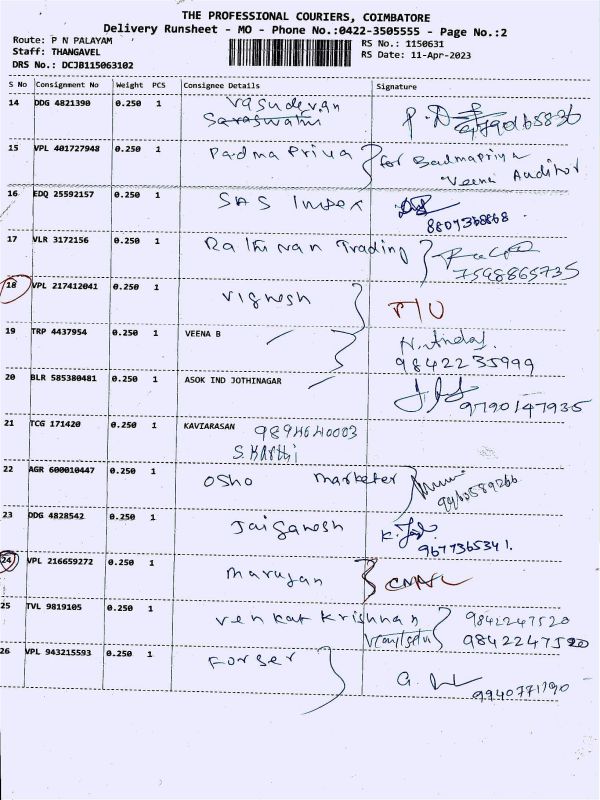 THE PROFESSIONAL COURIERS, COIMBATORE
Delivery Runsheet - MO - Phone No.:0422-3505555 - Page No.:2
Route: P N PALAYAM
RS No.: 1150631
Staff: THANGAVEL
RS Date: 11-Apr-2023
DRS No.: DCJB115063102
S No Consignment No Weight PCS Consignee Details Signature
14 DDG 4821390 0.250 1 Vasudevan
Saraswathi
15 VPL 401727948 0.250 1 Padma Priya for Badmapriya
Veena Auditor
16 EDQ 25592157 0.250 1 SAS Impex
8807368868
17 VLR 3172156 0.250 1 Rathinan Trading
7598865735
18 VPL 217412041 0.250 1 Vignesh
19 TRP 4437954 0.250 1 VEENA B
9842235999
20 BLR 585380481 0.250 1 ASOK IND JOTHINAGAR
9790147935
21 TCG 171420 0.250 1 KAVIARASAN 9894640003
S. Karthi
22 AGR 600010447 0.250 1 Osho Marketer
23 DDG 4828542 0.250 1 Jaiganesh
9677365341.
24 VPL 216659272 0.250 1 Marujan
25 TVL 9819105 0.250 1 Venkat Krishnan 9842247520
9842247520
26 VPL 943215593 0.250 1 Forser
9940771190